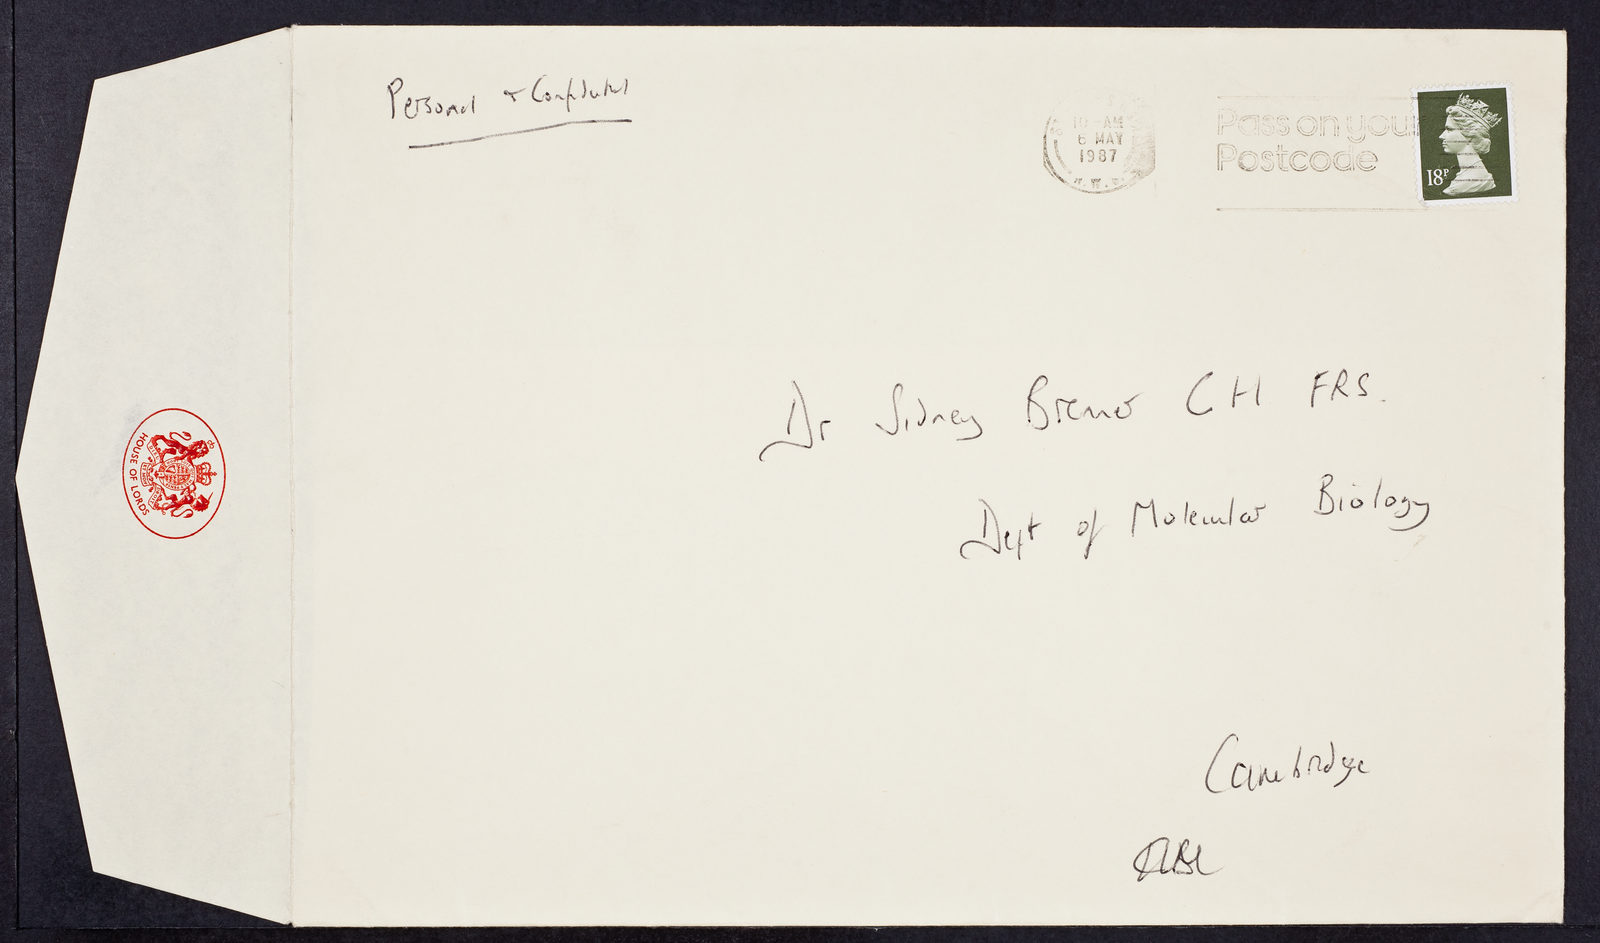 Personal & Confidential
10 - AM
6 MAY
1987
Pass on your
Postcode
18P
Dr Sidney Brenner CH FRS.
Dept of Molecular Biology
Cambridge
HOUSE OF LORDS